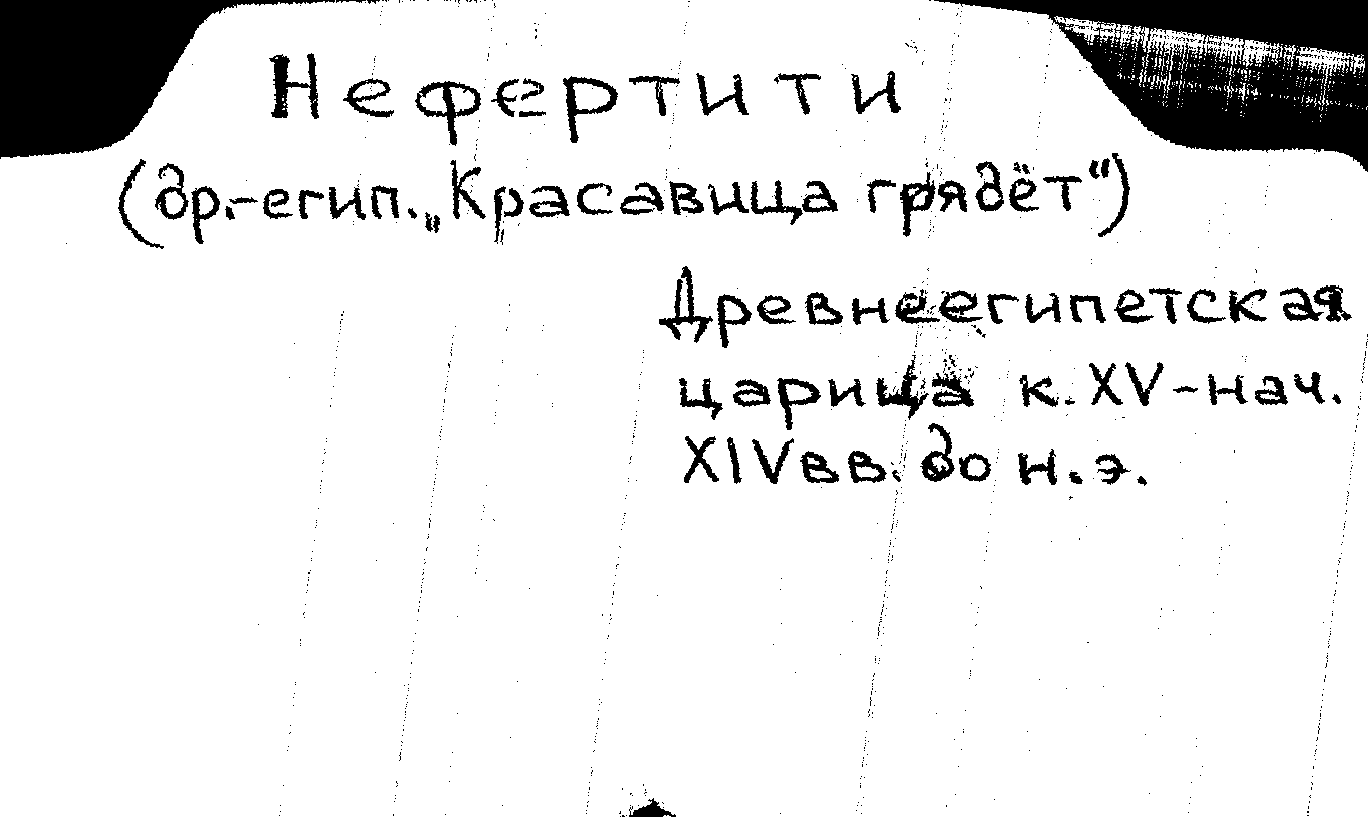 Нефертити
(др.-егип. „Красавица грядёт“)
Древнеегипетская
царица к. XV - нач.
XIV вв. до н.э.